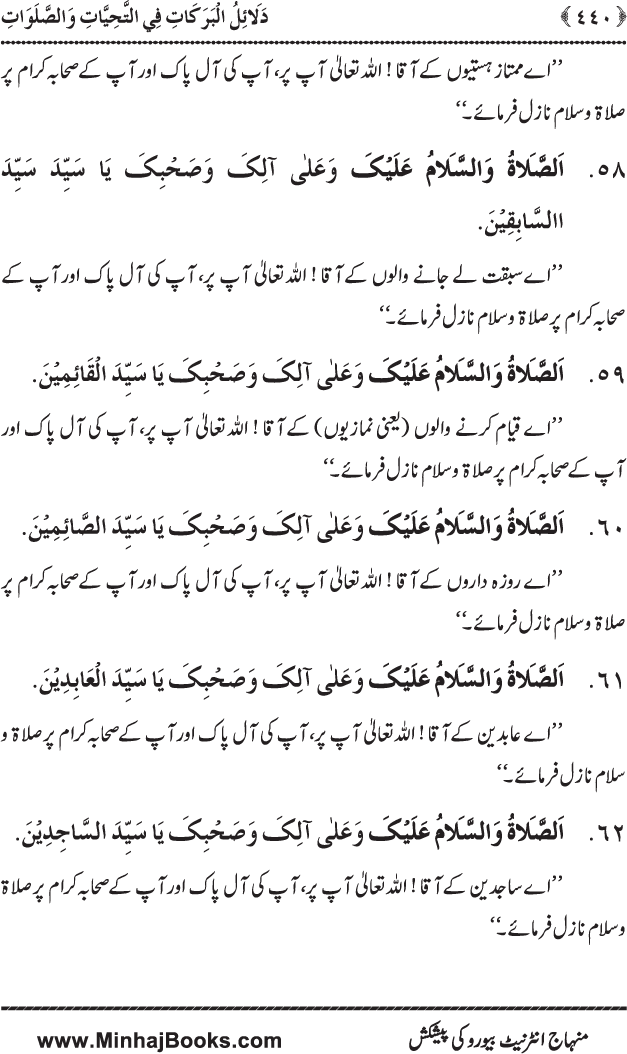 ﴿٤٤٠﴾ دَلَائِلُ الْبَرَكَاتِ فِي التَّحِيَّاتِ وَالصَّلَوَاتِ
’’اے ممتاز ہستیوں کے آقا! اللہ تعالیٰ آپ پر، آپ کی آل پاک اور آپ کے صحابہ کرام پر
صلاۃ وسلام نازل فرمائے۔‘‘
٥٨. اَلصَّلَاةُ وَالسَّلَامُ عَلَيْکَ وَعَلٰی آلِکَ وَصَحْبِکَ يَا سَيِّدَ سَيِّدَ
االسَّابِقِيْنَ.
’’اے سبقت لے جانے والوں کے آقا! اللہ تعالیٰ آپ پر، آپ کی آل پاک اور آپ کے
صحابہ کرام پر صلاۃ وسلام نازل فرمائے۔‘‘
٥٩. اَلصَّلَاةُ وَالسَّلَامُ عَلَيْکَ وَعَلٰی آلِکَ وَصَحْبِکَ يَا سَيِّدَ الْقَائِمِيْنَ.
’’اے قیام کرنے والوں (یعنی نمازیوں) کے آقا! اللہ تعالیٰ آپ پر، آپ کی آل پاک اور
آپ کے صحابہ کرام پر صلاۃ وسلام نازل فرمائے۔‘‘
٦٠. اَلصَّلَاةُ وَالسَّلَامُ عَلَيْکَ وَعَلٰی آلِکَ وَصَحْبِکَ يَا سَيِّدَ الصَّائِمِيْنَ.
’’اے روزہ داروں کے آقا! اللہ تعالیٰ آپ پر، آپ کی آل پاک اور آپ کے صحابہ کرام پر
صلاۃ وسلام نازل فرمائے۔‘‘
٦١. اَلصَّلَاةُ وَالسَّلَامُ عَلَيْکَ وَعَلٰی آلِکَ وَصَحْبِکَ يَا سَيِّدَ الْعَابِدِيْنَ.
’’اے عابدین کے آقا! اللہ تعالیٰ آپ پر، آپ کی آل پاک اور آپ کے صحابہ کرام پر صلاۃ و
سلام نازل فرمائے۔‘‘
٦٢. اَلصَّلَاةُ وَالسَّلَامُ عَلَيْکَ وَعَلٰی آلِکَ وَصَحْبِکَ يَا سَيِّدَ السَّاجِدِيْنَ.
’’اے ساجدین کے آقا! اللہ تعالیٰ آپ پر، آپ کی آل پاک اور آپ کے صحابہ کرام پر صلاۃ
وسلام نازل فرمائے۔‘‘
منہاج انٹرنیٹ بیورو کی پیشکش www.MinhajBooks.com